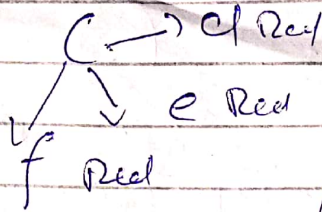 C d Red
e Red
f Red